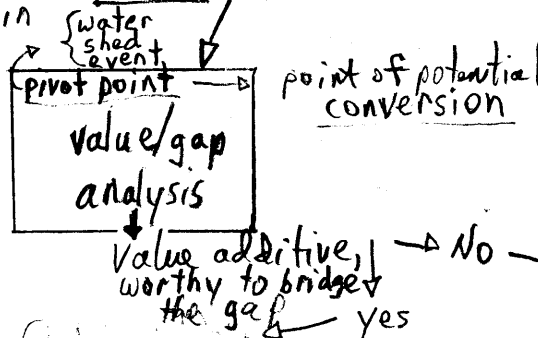 in
{water
shed
event
pivot point → point of potential
conversion
value/gap
analysis
Value additive, → No
worthy to bridge
the gap
yes